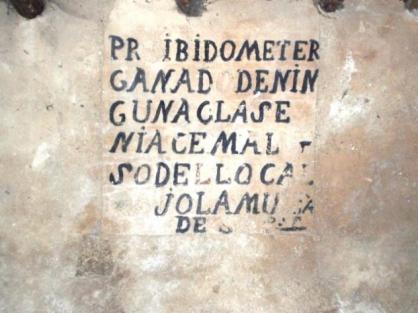 PR IBIDOMETER
GANAD DENIN
GUNACLASE
NIACEMAL
SODELLOCAL
JOLAMU A
DE